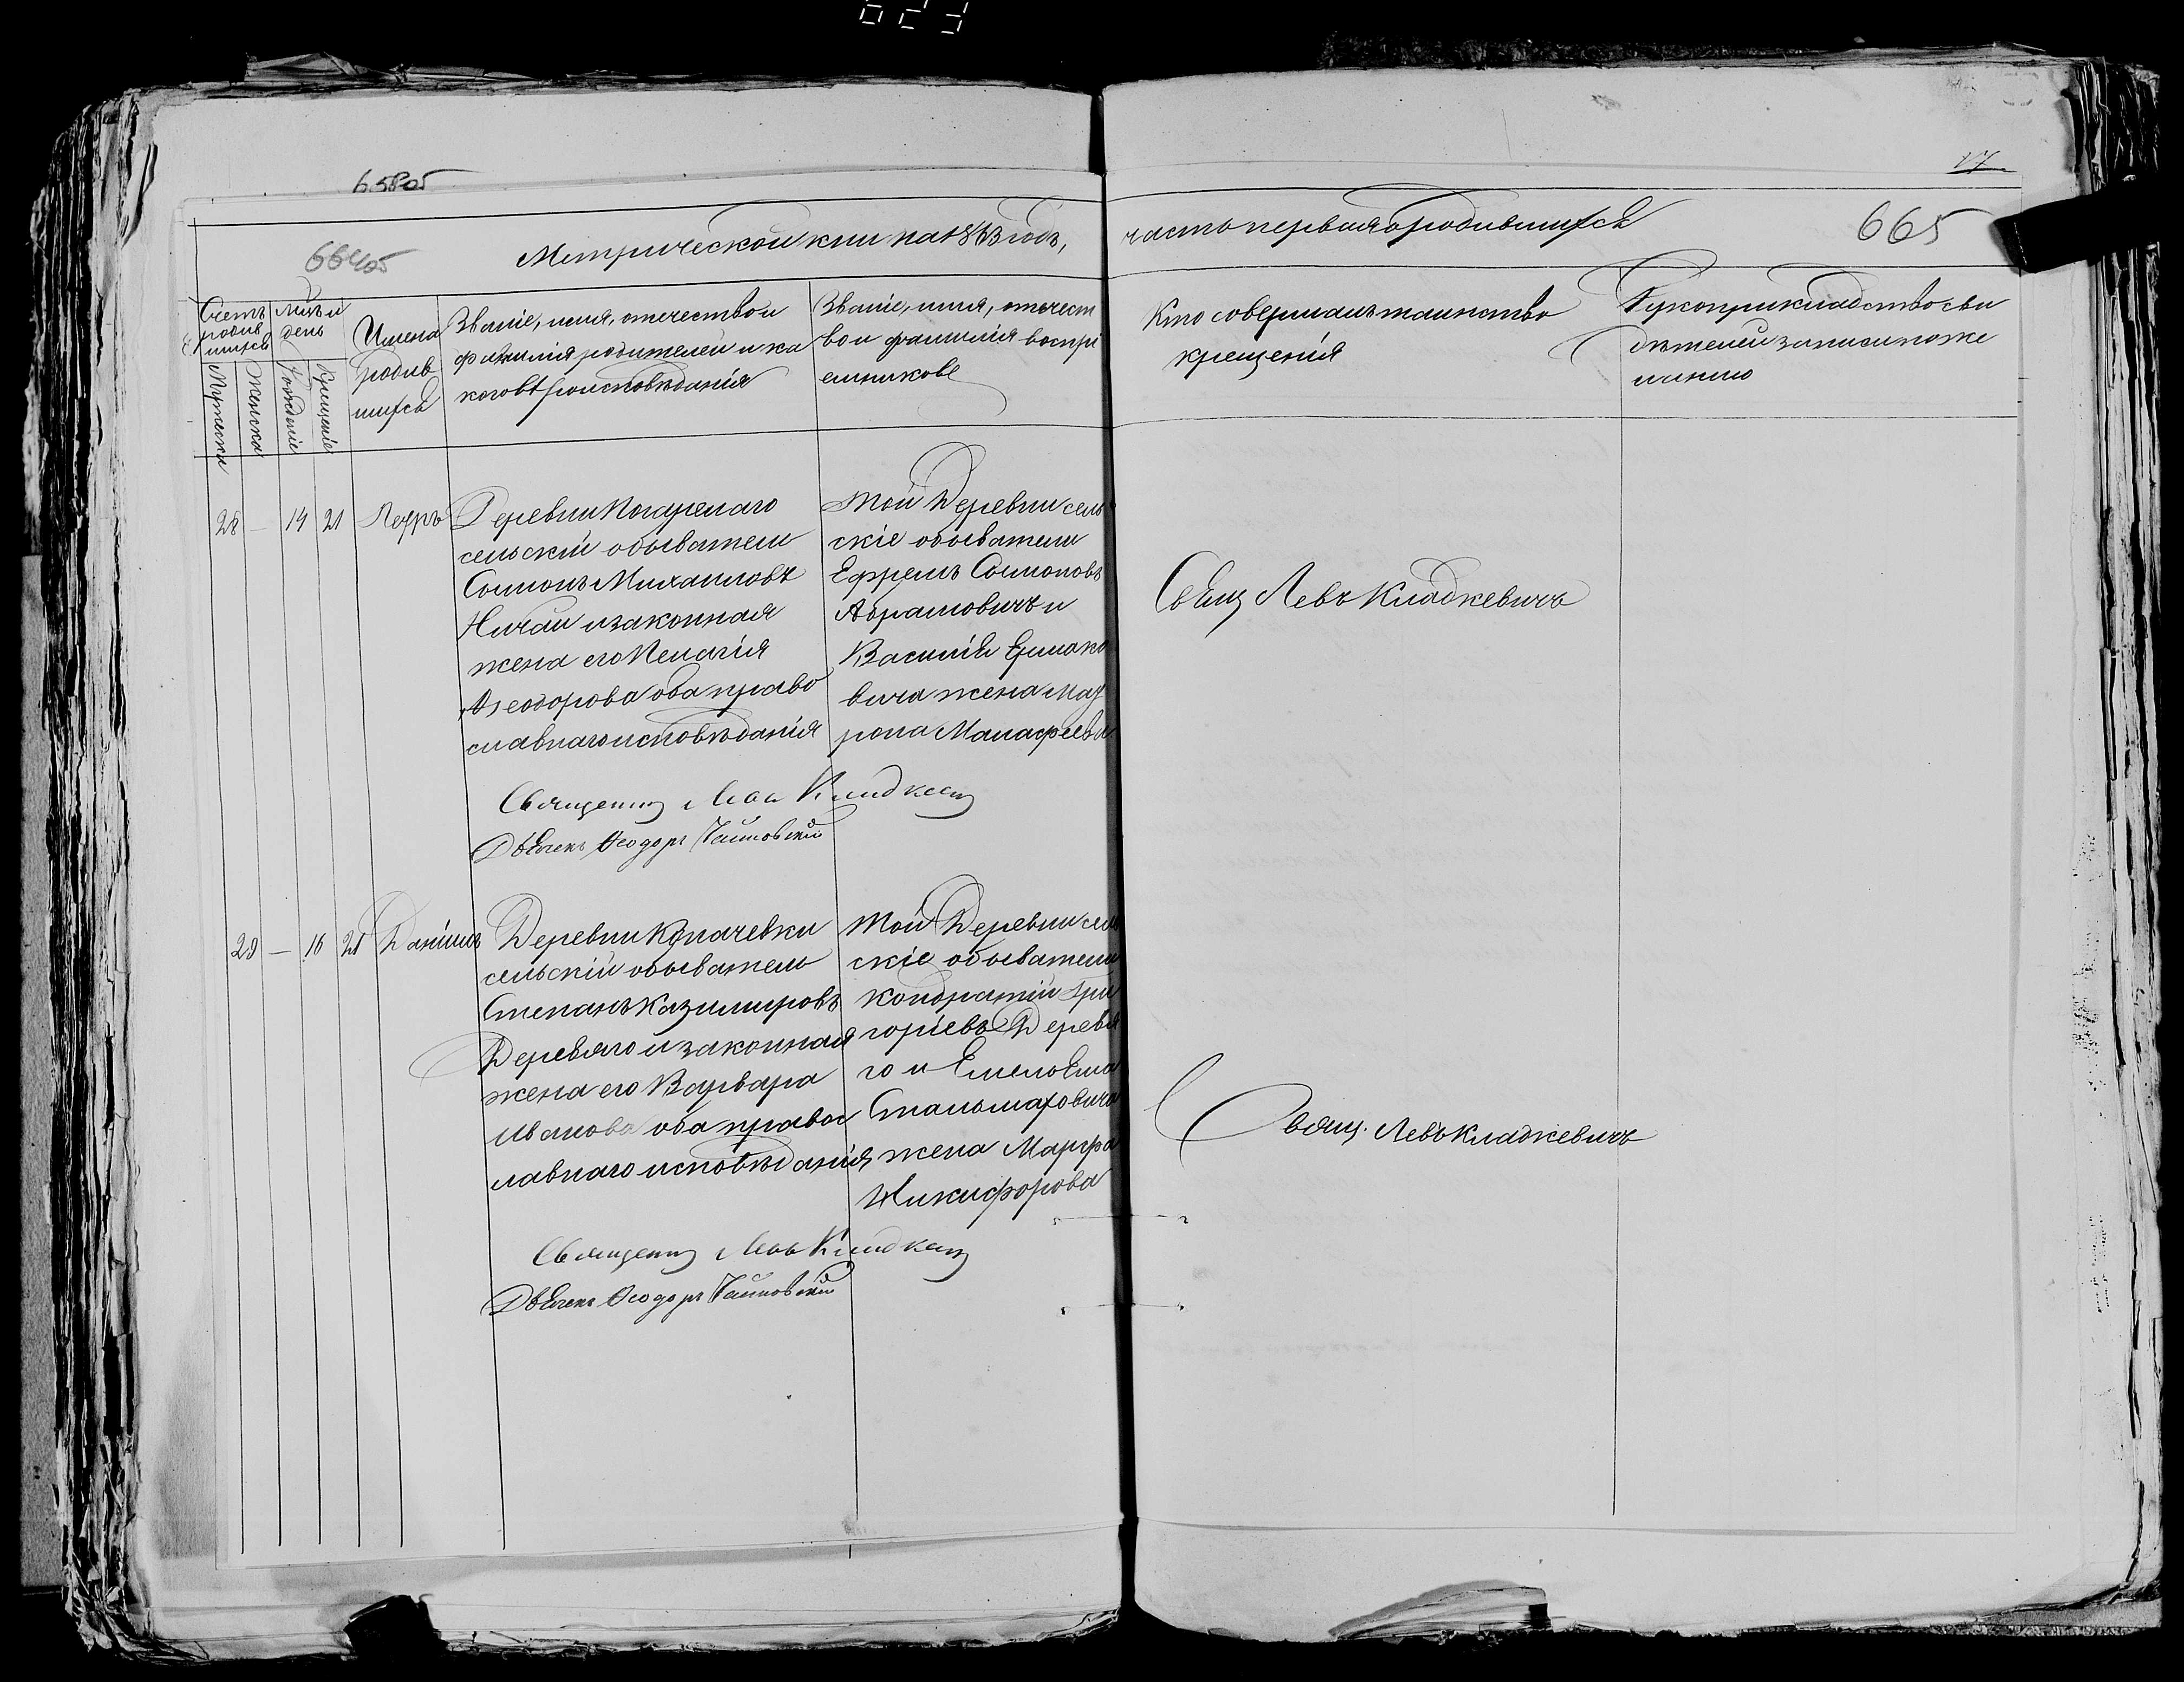 623
658об
17
664об
665
Метрической книги на 1883 годъ,
часть первая о родившихся
Счетъ
родив
шихся
Мужеска
Женска
Мѣсяцъ и
день
Рожденіе
Крещеніе
Имена
родив
шихся
Званіе, имя, отчество и
фамилія родителей и ка
кого вѣроисповѣданія
Званіе, имя, отчест
во и фамилія воспрі
емниковъ
Кто совершалъ таинство
крещенія
Рукоприкладство сви
дѣтелей записи по же
ланію
28 — 14 21
Деревни Погарелаго
сельскій обыватель
Соломонъ Михаиловъ
Ничай и законная
жена его Пелагія
Ѳеодорова оба право
славнаго исповѣданія
Той Деревни сель
скіе обыватели
Ефремъ Соломоновъ
Абрамовичъ и
Василія Ермако
вича жена Мат
рона Малафеева
Свящ Левъ Кладкевичъ
Священник Левъ Кладкевич
Дьячекъ Ѳеодоръ
29 — 16 21 Даніилъ
Деревни Копачевки
сельскій обыватель
Степанъ Казимировъ
Деревяго и законная
жена его Варвара
Иванова оба правос
лавнаго исповѣданія
Той Деревни сель
скіе обыватели
Кондратій Гри
горіевъ Деревя
го и Емельяна
Стальмаховича
жена Марфа
Никифорова
Свящ. Левъ Кладкевичъ
Священник Левъ Кладкевич
Дьячекъ Ѳеодоръ